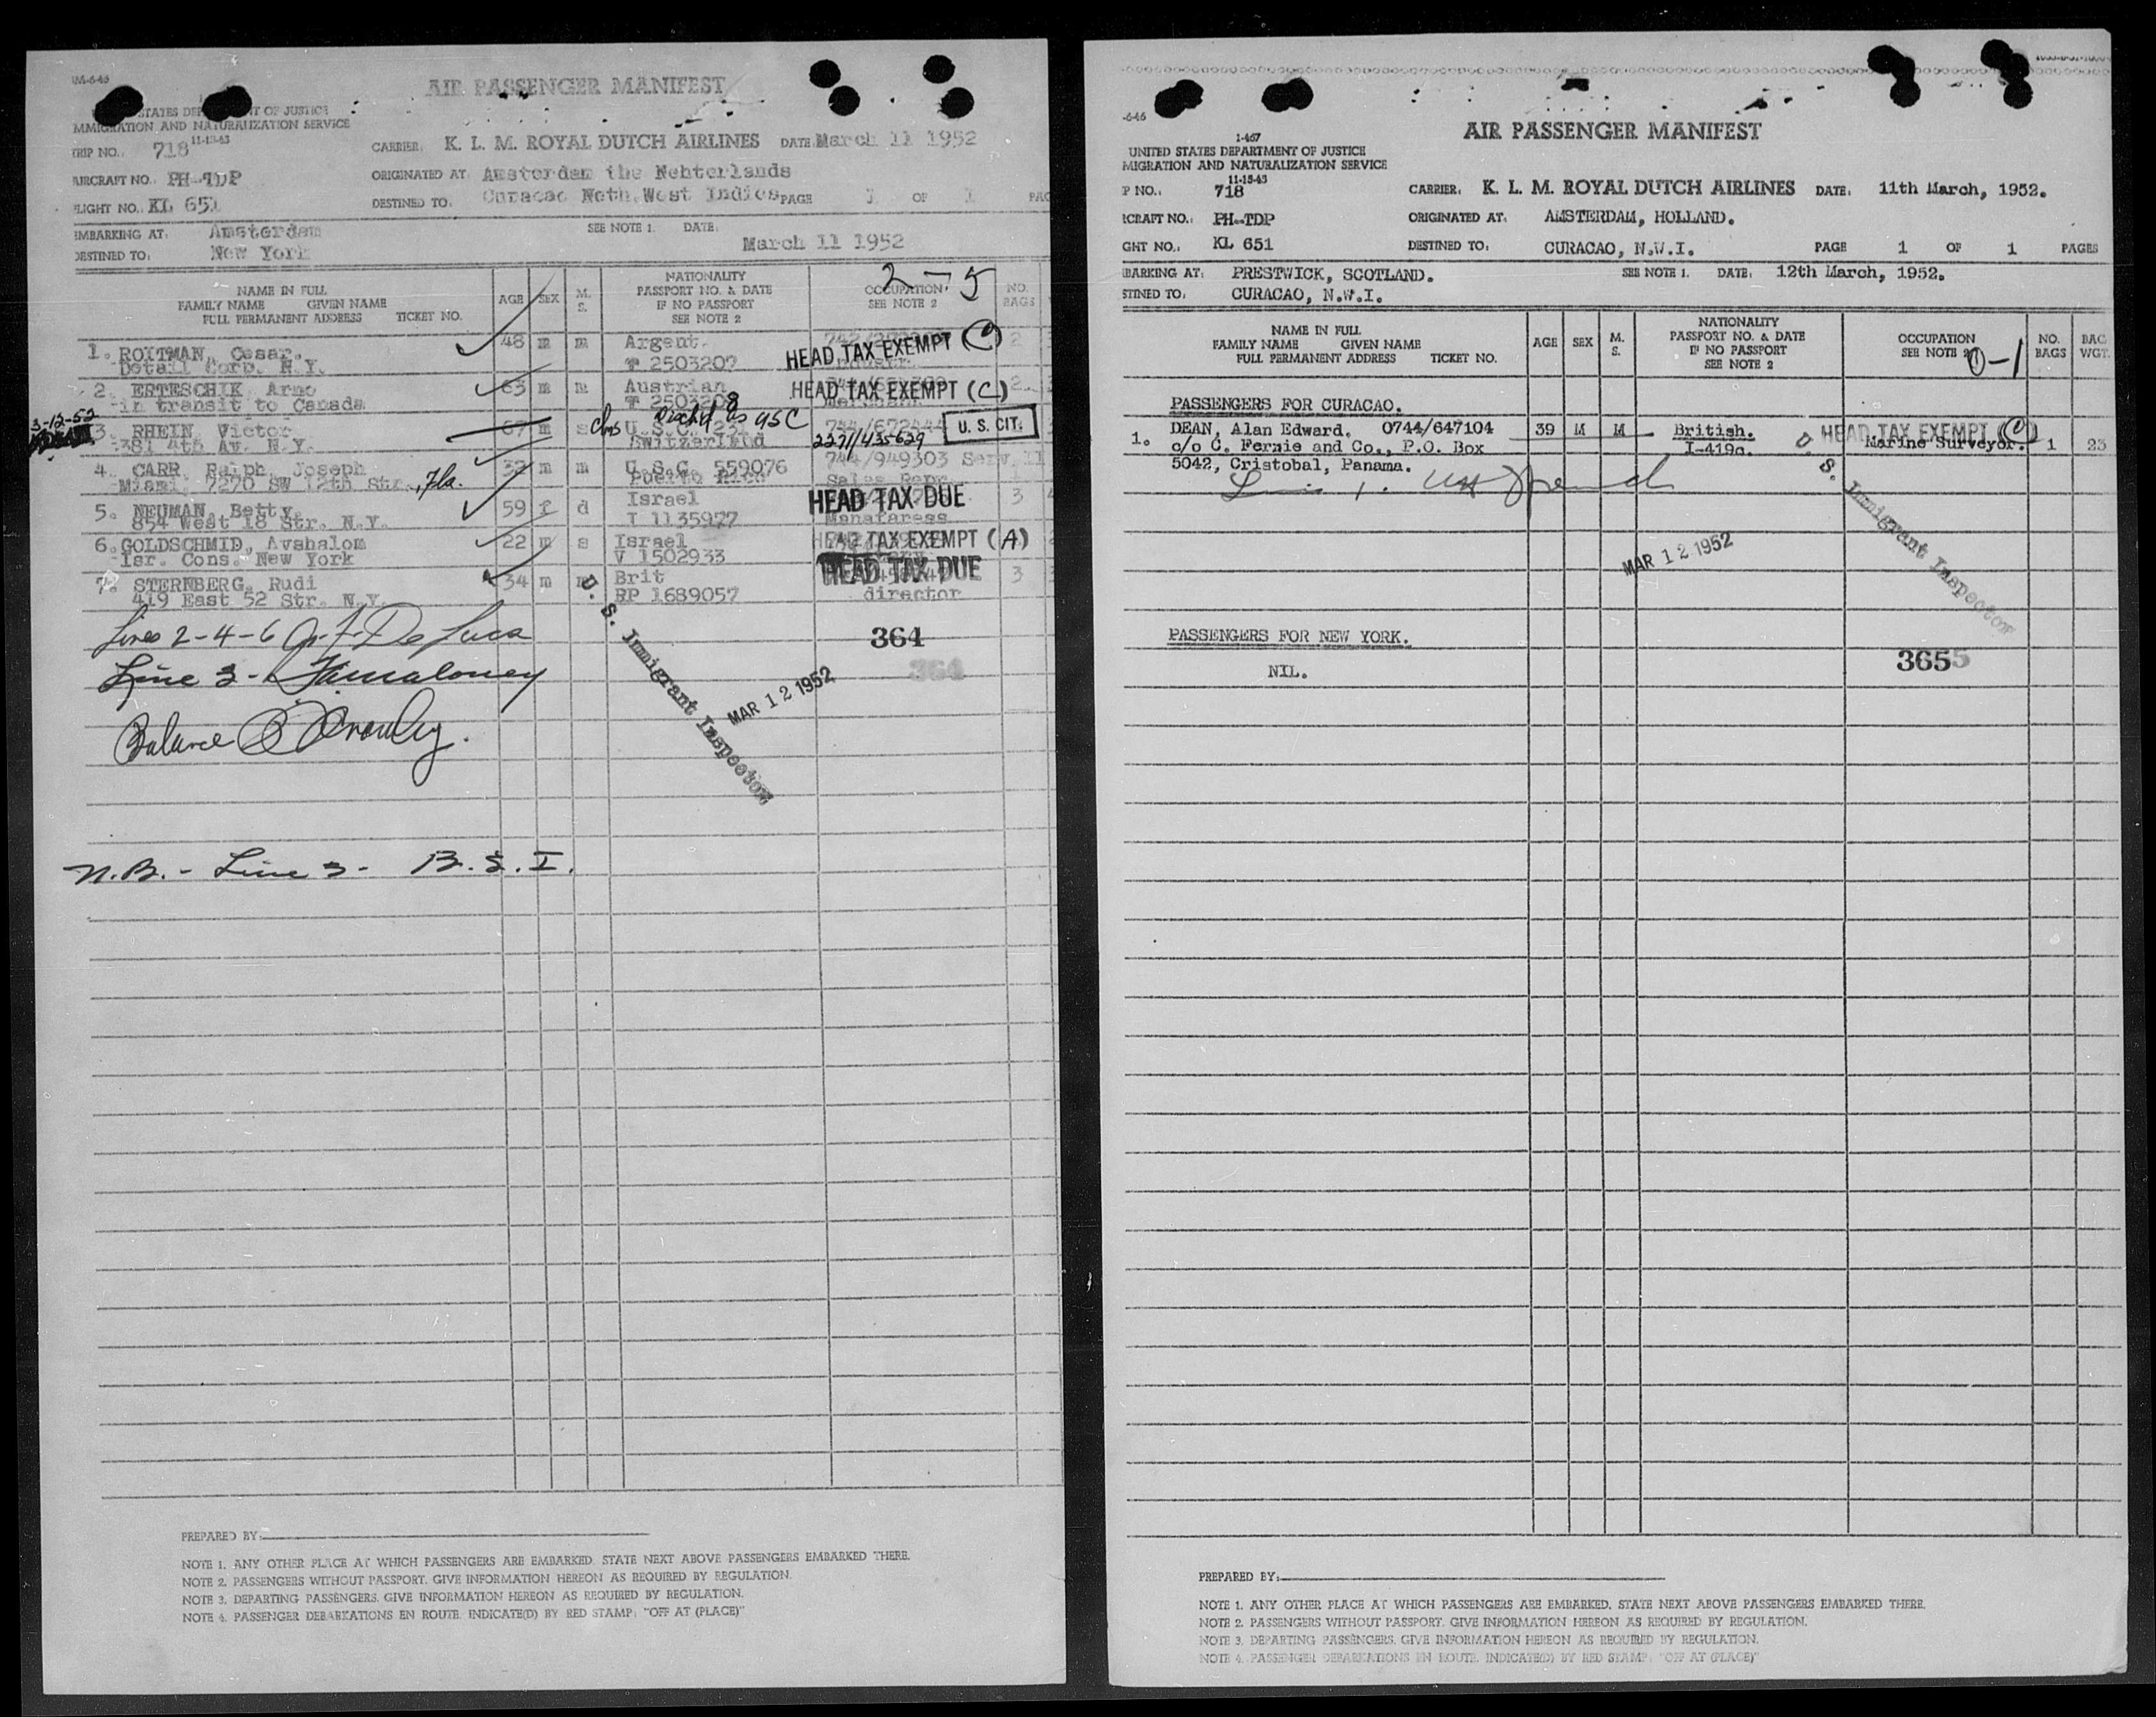 AIR PASSENGER MANIFEST
STATES DEP T OF JUSTICE
MMIGRATION AND NATURALIZATION SERVICE
11-13-43
TRIP NO. 718
CARRIER, K. L. M. ROYAL DUTCH AIRLINES DATE March 11 1952
AIRCRAFT NO. PH-TDP
ORIGINATED AT Amsterdam the Nehterlands
FLIGHT NO. KL 651
DESTINED TO, Curacao Neth.West Indies PAGE 1 OF 1 PAG
EMBARKING AT, Amsterdam
SEE NOTE 1. DATE, March 11 1952
DESTINED TO, New York
2-5
NAME IN FULL
FAMILY NAME GIVEN NAME
FULL PERMANENT ADDRESS TICKET NO.
AGE SEX M. S.
NATIONALITY
PASSPORT NO. & DATE
IF NO PASSPORT
SEE NOTE 2
OCCUPATION
SEE NOTE 2
NO. BAGS
1. ROITMAN, Cesar. 48 m m Argent. HEAD TAX EXEMPT (C) 2
Detail Corp. N.Y. T 2503207
2. ESTESCHIK, Arno 63 m m Austrian HEAD TAX EXEMPT (C) 2
in transit to Canada
3-12-52
Disch'd as USC
3. RHEIN, Victor 67 m s U.S.C. 744/672444 U. S. CIT.
381 4th Av. N.Y. Switzerland 2271/435629
4. CARR, Ralph, Joseph 32 m m U.S.C. 559076 744/949303
Miami, 7270 SW 12th Str., Fla. Puerto Rico Sales Repr.
5. NEUMAN, Betty. 59 f d Israel HEAD TAX DUE 3
854 West 18 Str. N.Y. T 1135977
6. GOLDSCHMID, Avshalom 22 m s Israel HEAD TAX EXEMPT (A)
Isr. Cons. New York V 1502933
7. STERNBERG, Rudi 34 m m Brit HEAD TAX DUE 3
419 East 52 Str. N.Y. RP 1689057 director
Lines 2-4-6 De Luca
364
364
Line 3 -
U. S. Immigrant Inspector
MAR 12 1952
Balance
N.B. - Line 3 - B.S.I.
PREPARED BY:
NOTE 1. ANY OTHER PLACE AT WHICH PASSENGERS ARE EMBARKED, STATE NEXT ABOVE PASSENGERS EMBARKED THERE.
NOTE 2. PASSENGERS WITHOUT PASSPORT, GIVE INFORMATION HEREON AS REQUIRED BY REGULATION.
NOTE 3. DEPARTING PASSENGERS, GIVE INFORMATION HEREON AS REQUIRED BY REGULATION.
NOTE 4. PASSENGER DEBARKATIONS EN ROUTE, INDICATE(D) BY RED STAMP: "OFF AT (PLACE)"
-6-46
1-467
AIR PASSENGER MANIFEST
UNITED STATES DEPARTMENT OF JUSTICE
MIGRATION AND NATURALIZATION SERVICE
11-13-43
P NO., 718
CARRIER, K. L. M. ROYAL DUTCH AIRLINES DATE, 11th March, 1952.
RCRAFT NO., PH-TDP
ORIGINATED AT, AMSTERDAM, HOLLAND.
GHT NO., KL 651
DESTINED TO, CURACAO, N.W.I. PAGE 1 OF 1 PAGES
BARKING AT, PRESTWICK, SCOTLAND.
SEE NOTE 1. DATE, 12th March, 1952.
STINED TO, CURACAO, N.W.I.
NAME IN FULL
FAMILY NAME GIVEN NAME
FULL PERMANENT ADDRESS TICKET NO.
AGE SEX M. S.
NATIONALITY
PASSPORT NO. & DATE
IF NO PASSPORT
SEE NOTE 2
OCCUPATION
SEE NOTE 2
0-1
NO. BAGS
BAG WGT.
PASSENGERS FOR CURACAO.
1. DEAN, Alan Edward. 0744/647104 39 M M British. HEAD TAX EXEMPT (C)
c/o C. Fernie and Co., P.O. Box I-419c. Marine Surveyor. 1 23
5042, Cristobal, Panama.
U. S. Immigrant Inspector
MAR 12 1952
PASSENGERS FOR NEW YORK.
3655
NIL.
PREPARED BY:
NOTE 1. ANY OTHER PLACE AT WHICH PASSENGERS ARE EMBARKED, STATE NEXT ABOVE PASSENGERS EMBARKED THERE.
NOTE 2. PASSENGERS WITHOUT PASSPORT, GIVE INFORMATION HEREON AS REQUIRED BY REGULATION.
NOTE 3. DEPARTING PASSENGERS, GIVE INFORMATION HEREON AS REQUIRED BY REGULATION.
NOTE 4. PASSENGER DEBARKATIONS EN ROUTE, INDICATE(D) BY RED STAMP: "OFF AT (PLACE)"